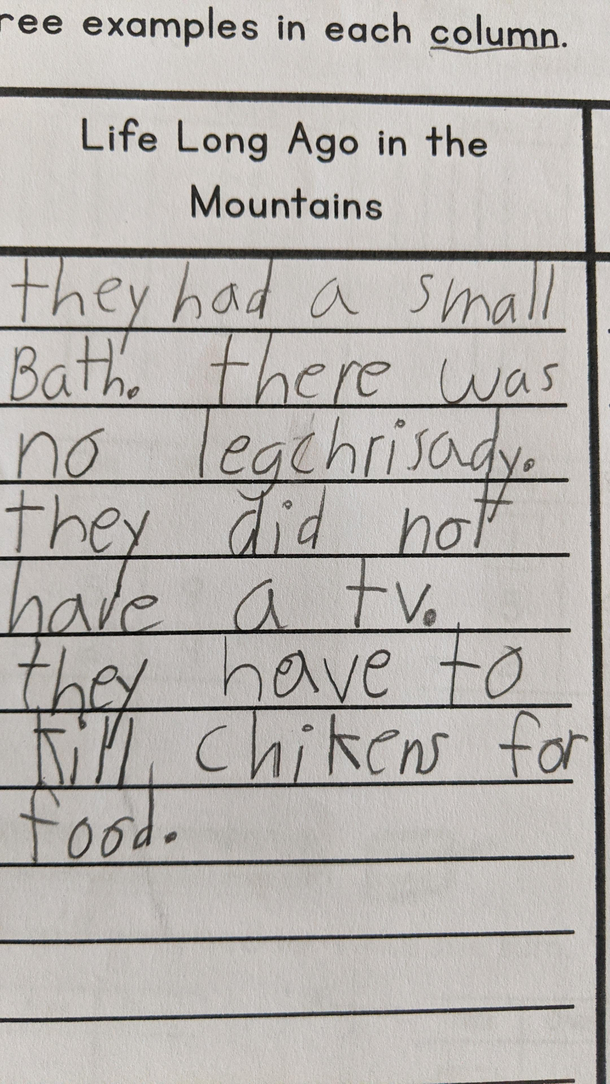 ree examples in each column.
Life Long Ago in the
Mountains
they had a small
Bath. there was
no legchrisady.
they did not
have a tv.
they have to
kill chikens for
food.